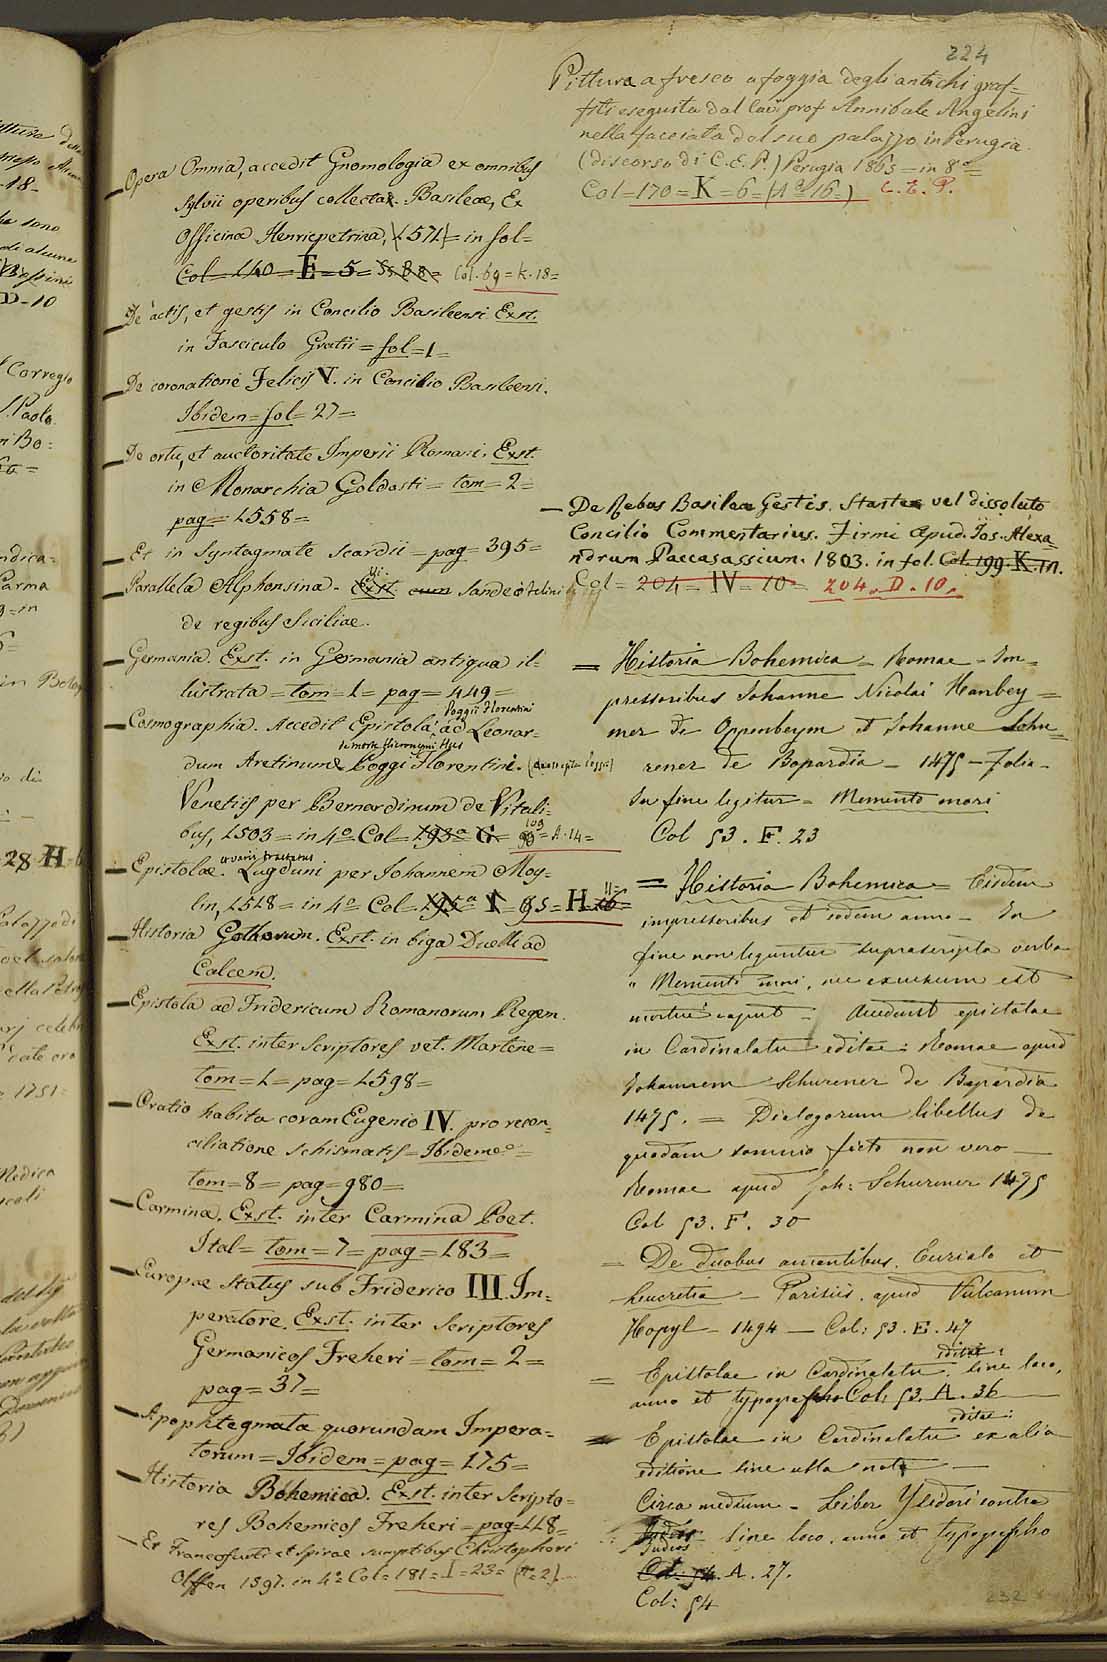 224
Pittura a fresco a foggia degli antichi graf=
fiti eseguita dal Cav. prof Annibale Angelini
nella facciata del suo palazzo in Perugia.
(discorso di C. E. P.) Perugia 1865 = in 8.o =
Col = 170 = K = 6 = (A.a 16 =) C. E. P.
Opera Omnia, accedit Gnomologia ex omnibus
Sylvii operibus collecta. Basileae, Ex
Officina Henricpetrina, 1571 = in fol =
Col = 140 = E = 5 = Col. 69 = K. 18 =
De actis, et gestis in Concilio Basileensi Exst.
in Fasciculo Gratii = fol = 1 =
De coronatione Felicis V. in Concilio Basileensi.
Ibidem = fol = 27 =
De ortu, et auctoritate Imperii Romani. Exst.
in Monarchia Goldasti = tom = 2 =
pag = 1558 =
Et in Syntagmate Scardii = pag = 395 =
Parallela Alphonsina. Exst. cum Sandeo Felini
de regibus Siciliae.
Germania. Exst. in Germania antiqua il=
lustrata = tom = 1 = pag = 449 =
Poggii Florentini
Cosmographia. Accedit Epistola ad Leonar=
de morte Hieronymi Hus
dum Aretinum Poggi Florentini.
Venetiis per Bernardinum de Vitali=
bus, 1503 = in 4.o Col = 193.a G = 109 = A. 14 =
et varii tractatus.
Epistolae. Lugduni per Iohannem Moy=
lin, 1518 = in 4.o Col = 195.a I = 95 = H = 11 =
Historia Gothorum. Exst. in biga Duelli ad
Calcem.
Epistola ad Fridericum Romanorum Regem.
Exst. inter Scriptores vet. Martene =
tom = 1 = pag = 1598 =
Oratio habita coram Eugenio IV. pro recon=
ciliatione schismatis = Ibidem =
tom = 8 = pag = 980 =
Carmina. Exst. inter Carmina Poet.
Ital = tom = 7 = pag = 183 =
Europae Status sub Friderico III. Im=
peratore. Exst. inter Scriptores
Germanicos Freheri = tom = 2 =
pag = 37 =
Apophtegmata quorundam Impera=
torum = Ibidem = pag = 175 =
Historia Bohemica. Exst. inter Scripto=
res Bohemicos Freheri = pag = 118 =
Et Francofurti et Spirae sumptibus Christophori
Olffen 1697. in 4.o Col = 181 = I = 23 =
De Rebus Basileae Gestis. Stante vel dissoluto
Concilio Commentarius. Firmi apud. Ios. Alexa=
ndrum Paccasassium. 1803. in fol. Col. 199. K. 10.
Col = 204 = IV = 10 = 204. D. 10.
= Historia Bohemica = Romae = Im=
pressoribus Johanne Nicolai Hanbey=
mer de Oppenbeym et Johanne Schu=
rener de Bopardia = 1475 = Folio =
In fine legitur = Memento mori
Col 53. F. 23
= Historia Bohemica = Eisdem
impressoribus et eodem anno = In
fine non leguntur suprascripta verba
" Memento mori, nec excusum est
mortui caput = Accedunt epistolae
in Cardinalatu editae: Romae apud
Johannem Schurener de Bopardia
1475. = Dialogorum libellus de
quodam somnio ficto non vero =
Romae apud Joh: Schurener 1475
Col 53. F. 30
= De duobus amantibus. Eurialo et
Lucretia = Parisiis. apud Vulcanum
Hopyl = 1494 = Col: 53. E. 47
editae:
= Epistolae in Cardinalatu. sine loco,
anno et typographo Col: 53. A. 36
editae:
= Epistolae in Cardinalatu ex alia
editione sine ulla nota
Circa medium = Leiber Ysidori contra
Judeos sine loco, anno et typographo
Judeos
Col: 54. A. 27.
Col: 54
232